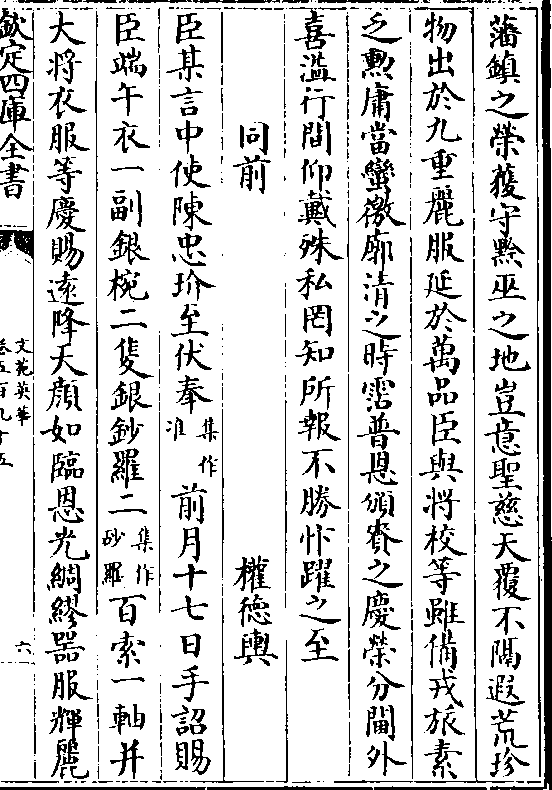 藩鎮之榮獲守黔巫之地豈意聖慈天覆不隔遐荒珍
物出於九重麗服延於萬品臣與將校等雖備戎旅素
乏勲庸當蠻徼廓清之時霑普恩頒賚之慶榮分閫外
喜溢行間仰戴殊私罔知所報不勝忭躍之至
同前　權德輿
臣某言中使陳忠玠至伏奉集作准前月十七日手詔賜
臣端午衣一副銀椀二隻銀鈔羅二集作砂羅百索一軸并
大將衣服等慶賜遠降天顔如臨恩光綢繆器服輝麗
欽定四庫全書
文苑英華
卷五百九十五
六